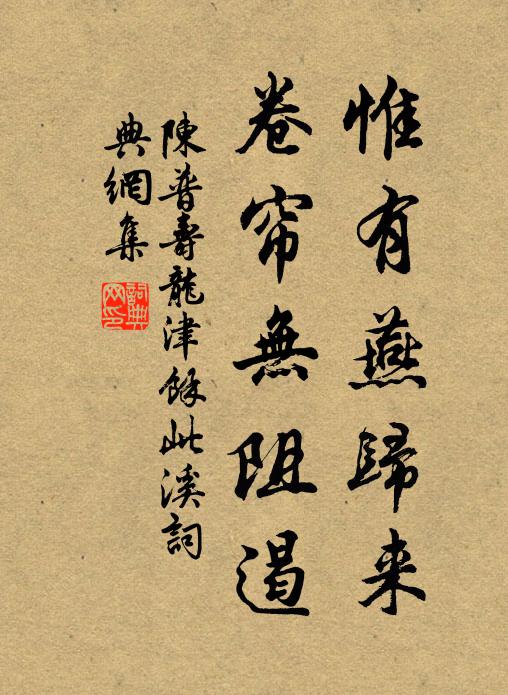 惟有燕歸来
卷帘無阻遏
陳普壽龍津餘此溪詞
典網集
詞典網印